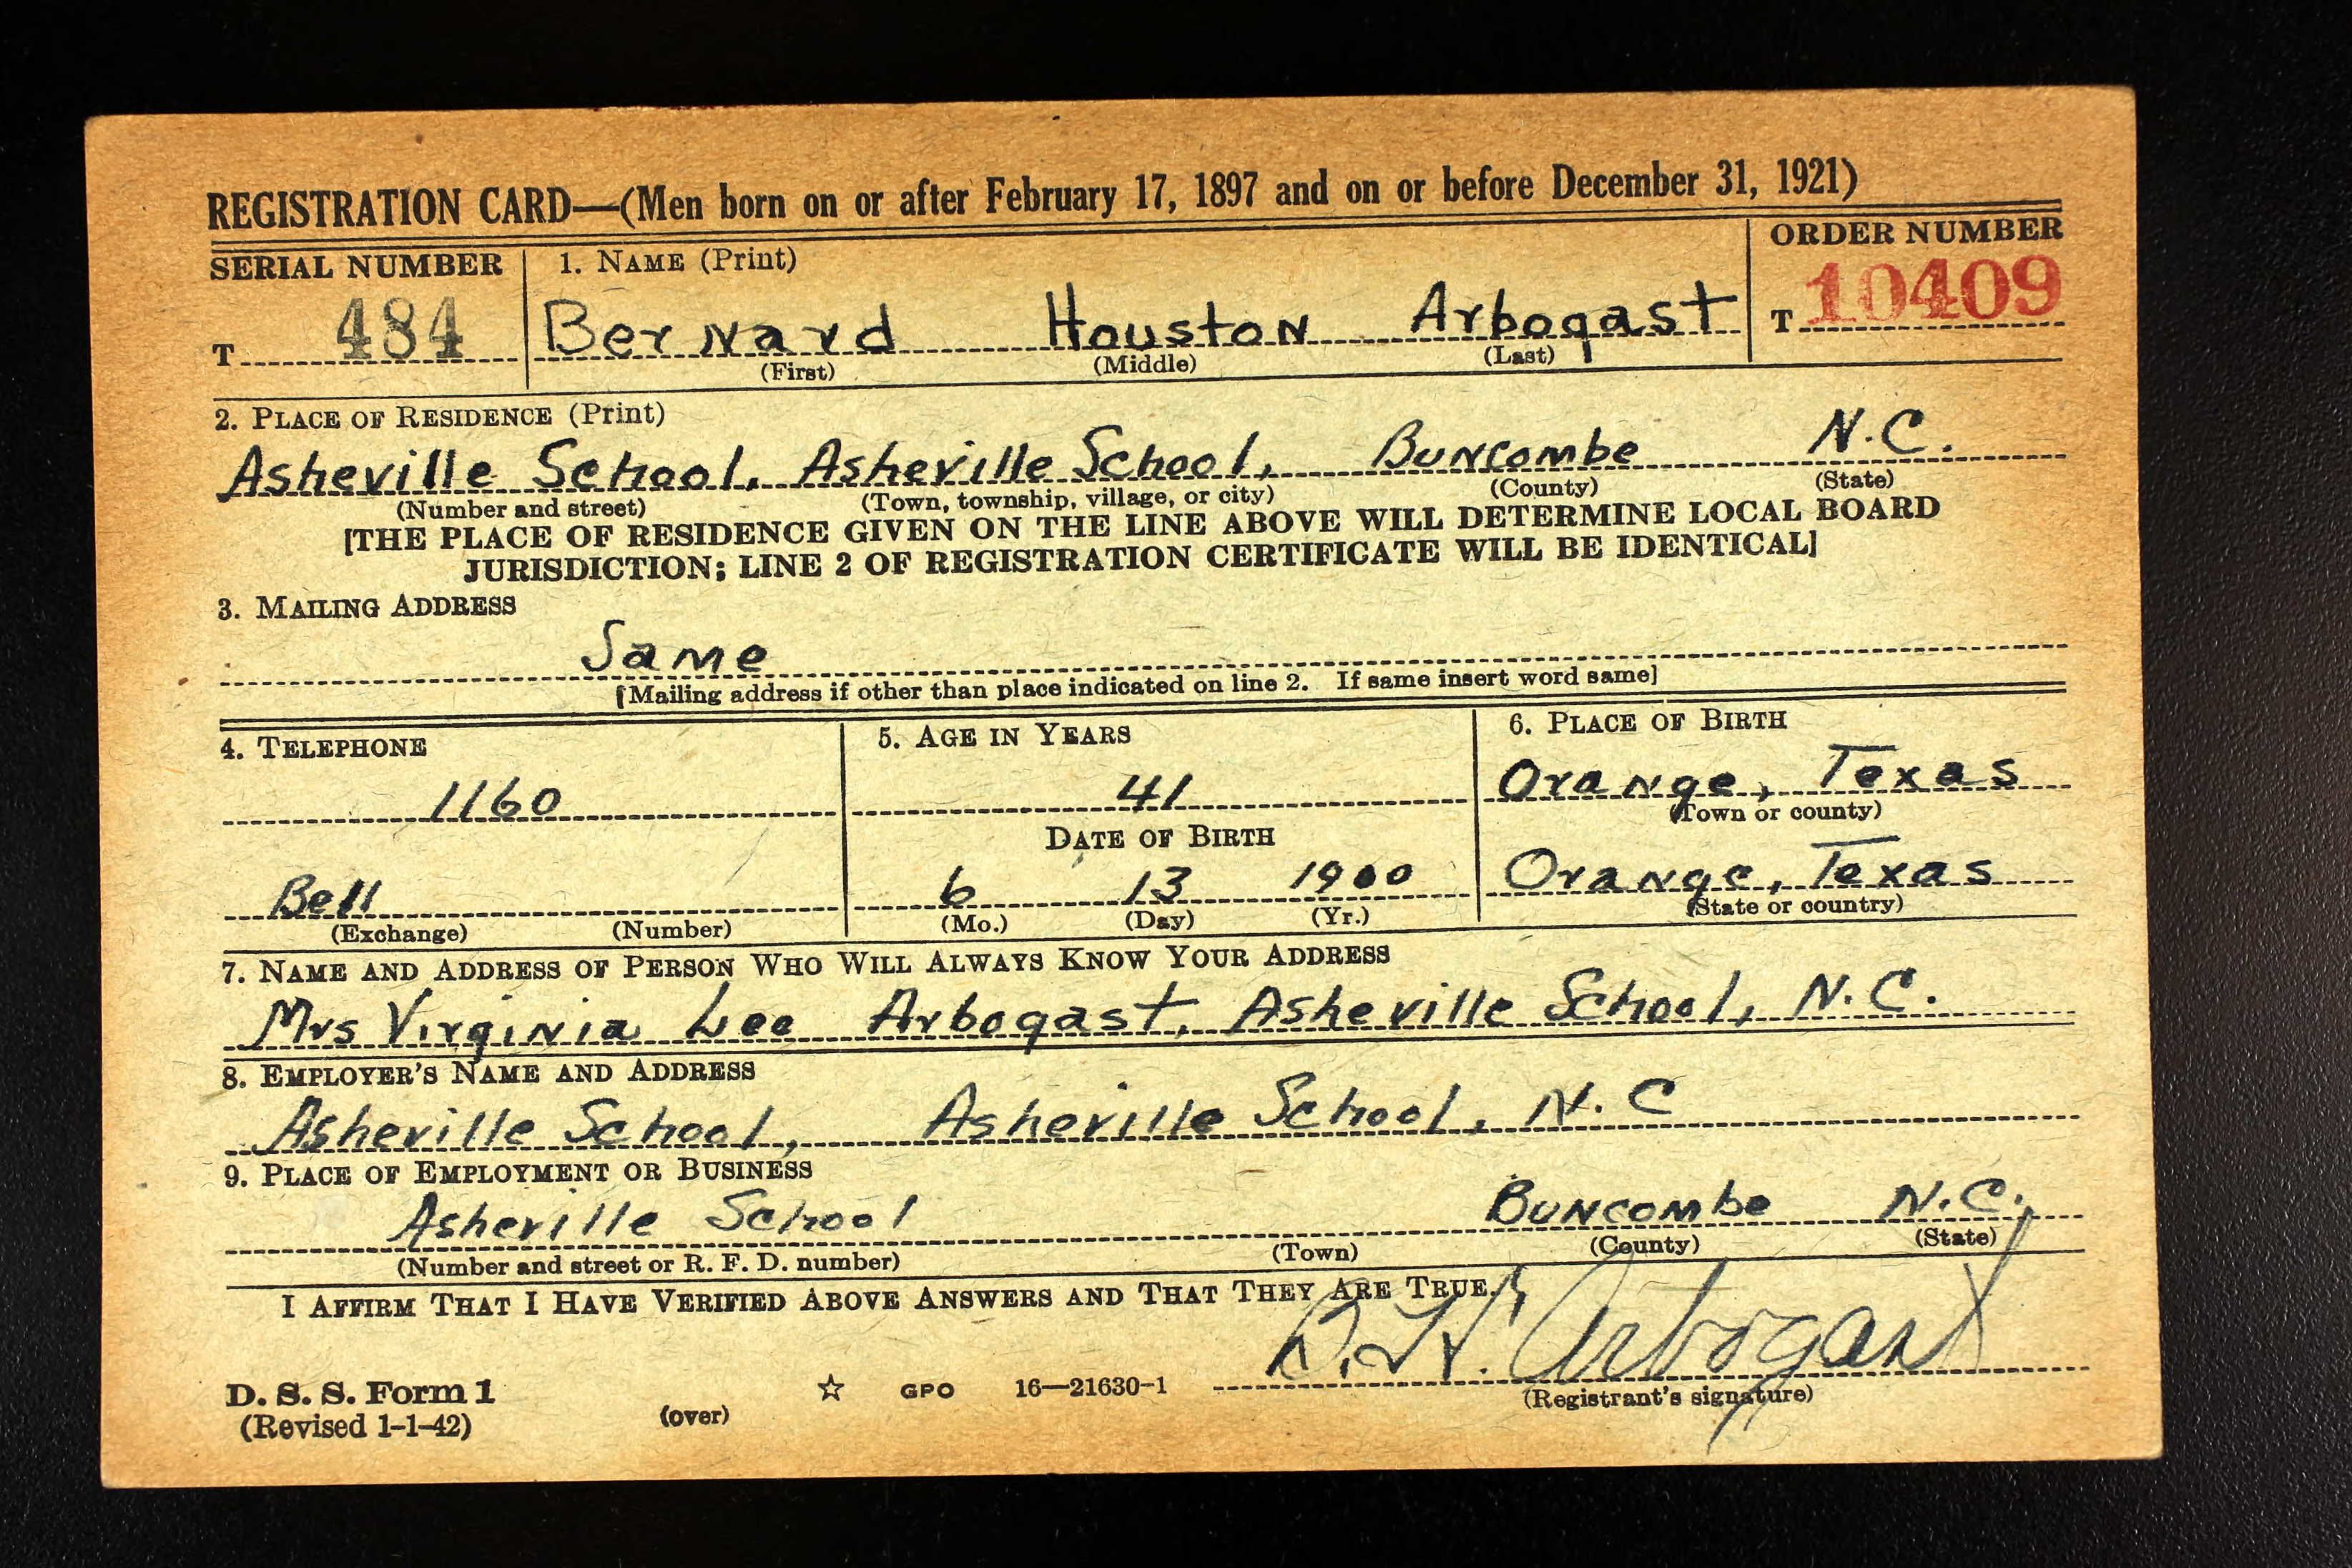 REGISTRATION CARD—(Men born on or after February 17, 1897 and on or before December 31, 1921)
SERIAL NUMBER 1. NAME (Print) ORDER NUMBER
T 484 Bernard Houston Arbogast T 10409
(First) (Middle) (Last)
2. PLACE OF RESIDENCE (Print)
Asheville School, Asheville School, Buncombe N.C.
(Number and street) (Town, township, village, or city) (County) (State)
[THE PLACE OF RESIDENCE GIVEN ON THE LINE ABOVE WILL DETERMINE LOCAL BOARD
JURISDICTION; LINE 2 OF REGISTRATION CERTIFICATE WILL BE IDENTICAL]
3. MAILING ADDRESS
Same
[Mailing address if other than place indicated on line 2. If same insert word same]
4. TELEPHONE 5. AGE IN YEARS 6. PLACE OF BIRTH
1160 41 Orange, Texas
(Town or county)
DATE OF BIRTH
Bell 6 13 1900 Orange, Texas
(Exchange) (Number) (Mo.) (Day) (Yr.) (State or country)
7. NAME AND ADDRESS OF PERSON WHO WILL ALWAYS KNOW YOUR ADDRESS
Mrs Virginia Lee Arbogast, Asheville School, N.C.
8. EMPLOYER'S NAME AND ADDRESS
Asheville School, Asheville School, N.C
9. PLACE OF EMPLOYMENT OR BUSINESS
Asheville School Buncombe N.C.
(Number and street or R. F. D. number) (Town) (County) (State)
I AFFIRM THAT I HAVE VERIFIED ABOVE ANSWERS AND THAT THEY ARE TRUE.
B. H. Arbogast
D. S. S. Form 1 ☆ GPO 16—21630-1 (Registrant's signature)
(Revised 1-1-42) (over)